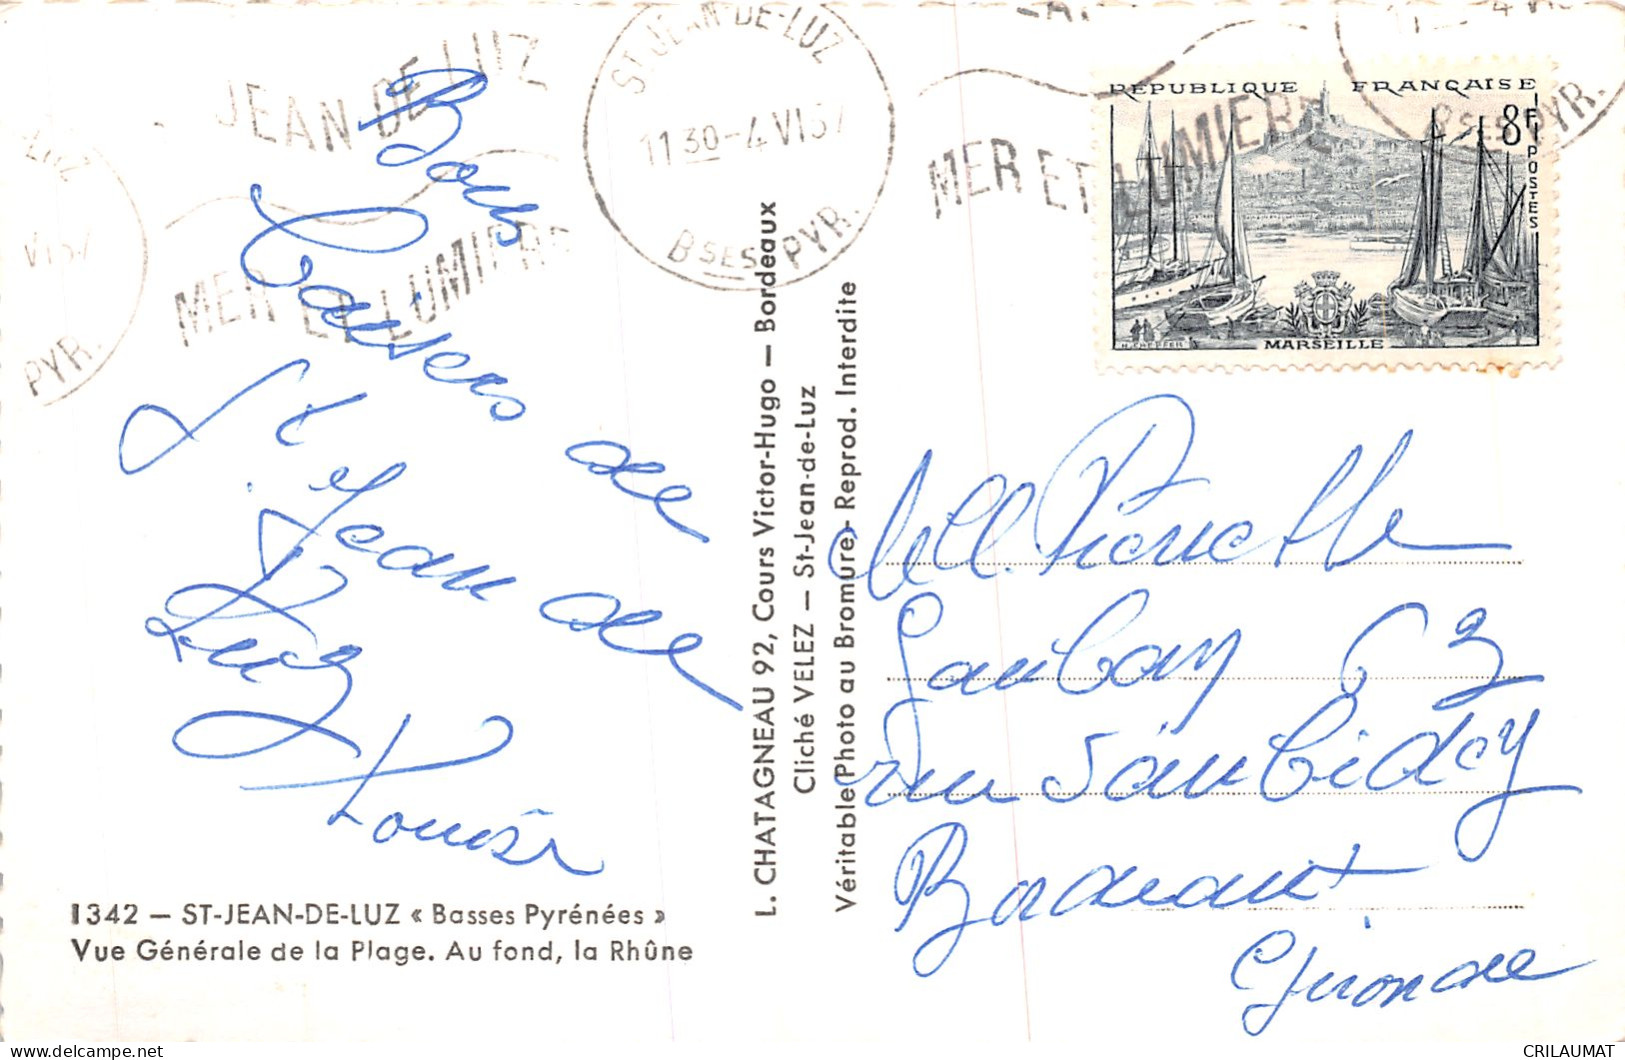 JEAN DE LUZ
MER ET LUMIERE
-LUZ
VI57
PYR.
ST JEAN-DE-LUZ
11 30 - 4 VI57
BSES PYR.
MER ET LUMIERE
4 VI
BSES PYR.
REPUBLIQUE FRANÇAISE
8F
POSTES
MARSEILLE
Bons
baisers de
St Jean de
Luz
Louise
1342 — ST-JEAN-DE-LUZ « Basses Pyrénées »
Vue Générale de la Plage. Au fond, la Rhûne
L. CHATAGNEAU 92, Cours Victor-Hugo — Bordeaux
Cliché VELEZ — St-Jean-de-Luz
Véritable Photo au Bromure - Reprod. Interdite
Mell. Pierrette
63
rue
Bordeaux
Gironde
CRILAUMAT